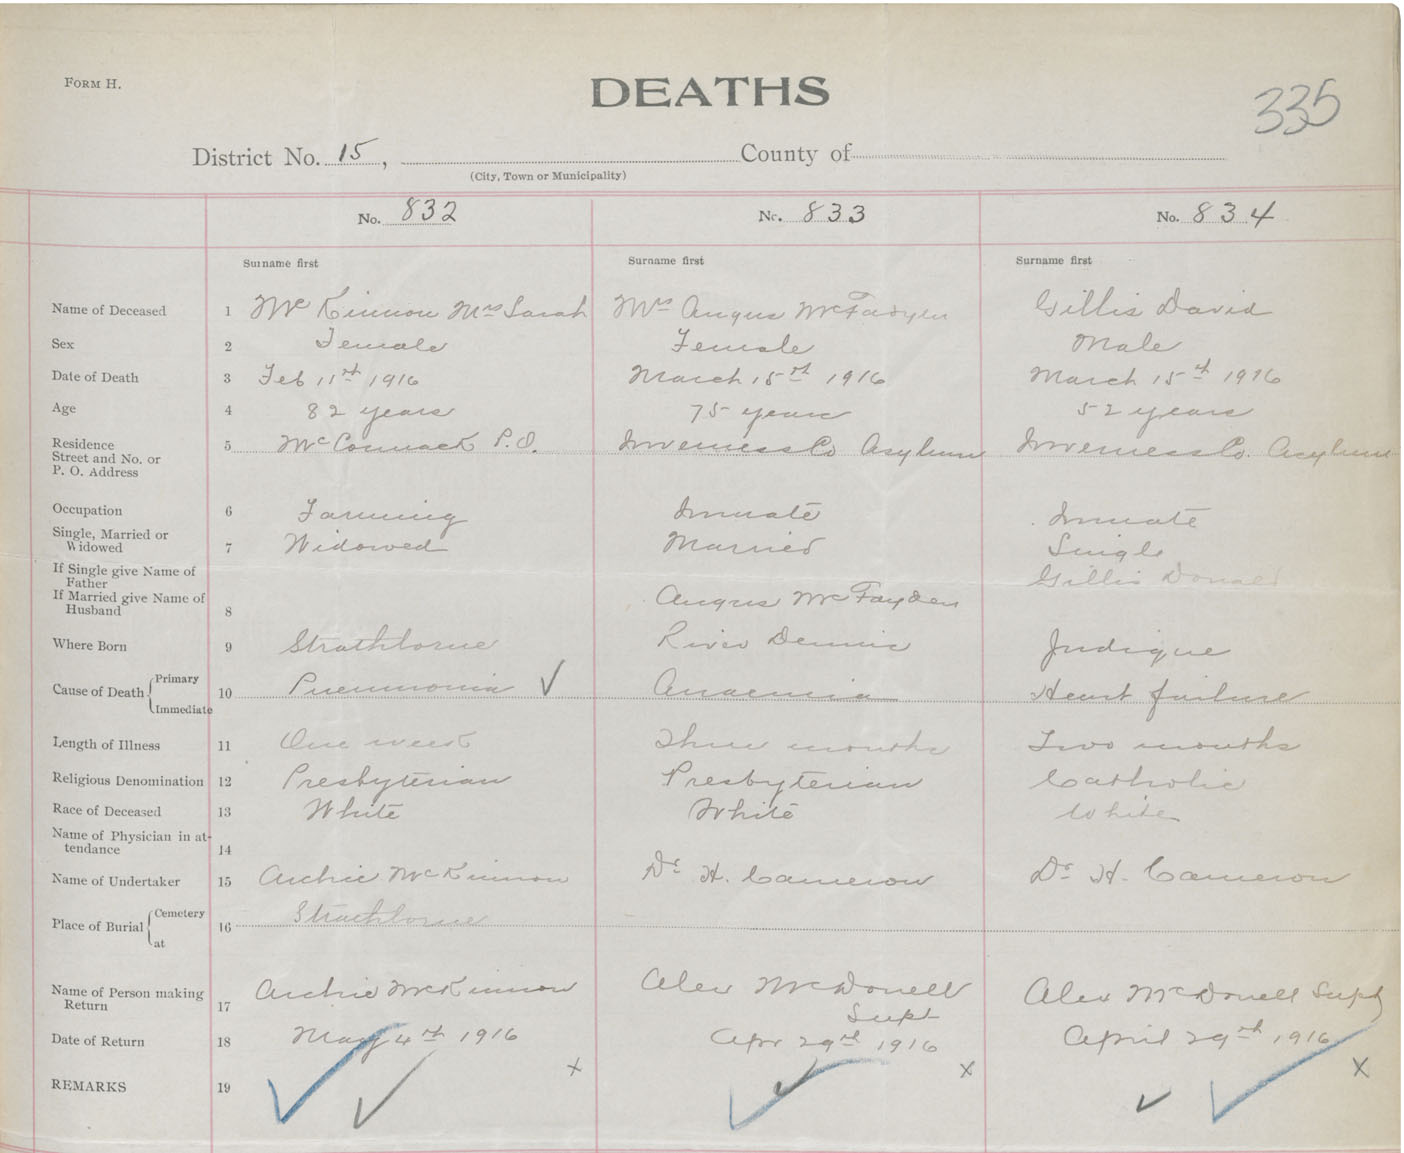 FORM H.
DEATHS
335
District No. 15, County of
(City, Town or Municipality)
No. 832 No. 833 No. 834
Surname first Surname first Surname first
Name of Deceased 1 McKinnon Mrs Sarah Mrs Angus McFadyen Gillis David
Sex 2 Female Female Male
Date of Death 3 Feb 11th 1916 March 15th 1916 March 15th 1916
Age 4 82 years 75 years 52 years
Residence
Street and No. or
P. O. Address 5 McCormack P.O. Inverness Co Asylum Inverness Co. Asylum
Occupation 6 Farming Inmate Inmate
Single, Married or
Widowed 7 Widowed Married Single
If Single give Name of
Father Gillis Donald
If Married give Name of
Husband 8 Angus McFayden
Where Born 9 Strathlorne River Dennis Judique
Cause of Death Primary
Immediate 10 Pneumonia ✓ Anaemia Heart failure
Length of Illness 11 One week Three months Two months
Religious Denomination 12 Presbyterian Presbyterian Catholic
Race of Deceased 13 White White White
Name of Physician in at-
tendance 14
Name of Undertaker 15 Archie McKinnon Dr H. Cameron Dr H. Cameron
Place of Burial Cemetery
at 16 Strathlorne
Name of Person making
Return 17 Archie McKinnon Alex McDonell Supt Alex McDonell Supt
Date of Return 18 May 4th 1916 Apr 29th 1916 April 29th 1916
REMARKS 19 ✓ ✓ x ✓ ✓ x ✓ ✓ x